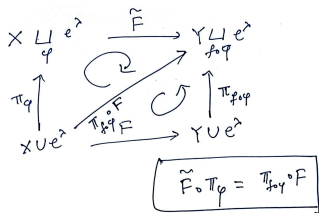 X ⊔_φ e^λ F̃ Y ⊔_{f∘φ} e^λ
π_φ π_{f∘φ}∘F π_{f∘φ}
X ∪ e^λ F Y ∪ e^λ
F̃ ∘ π_φ = π_{f∘φ} ∘ F